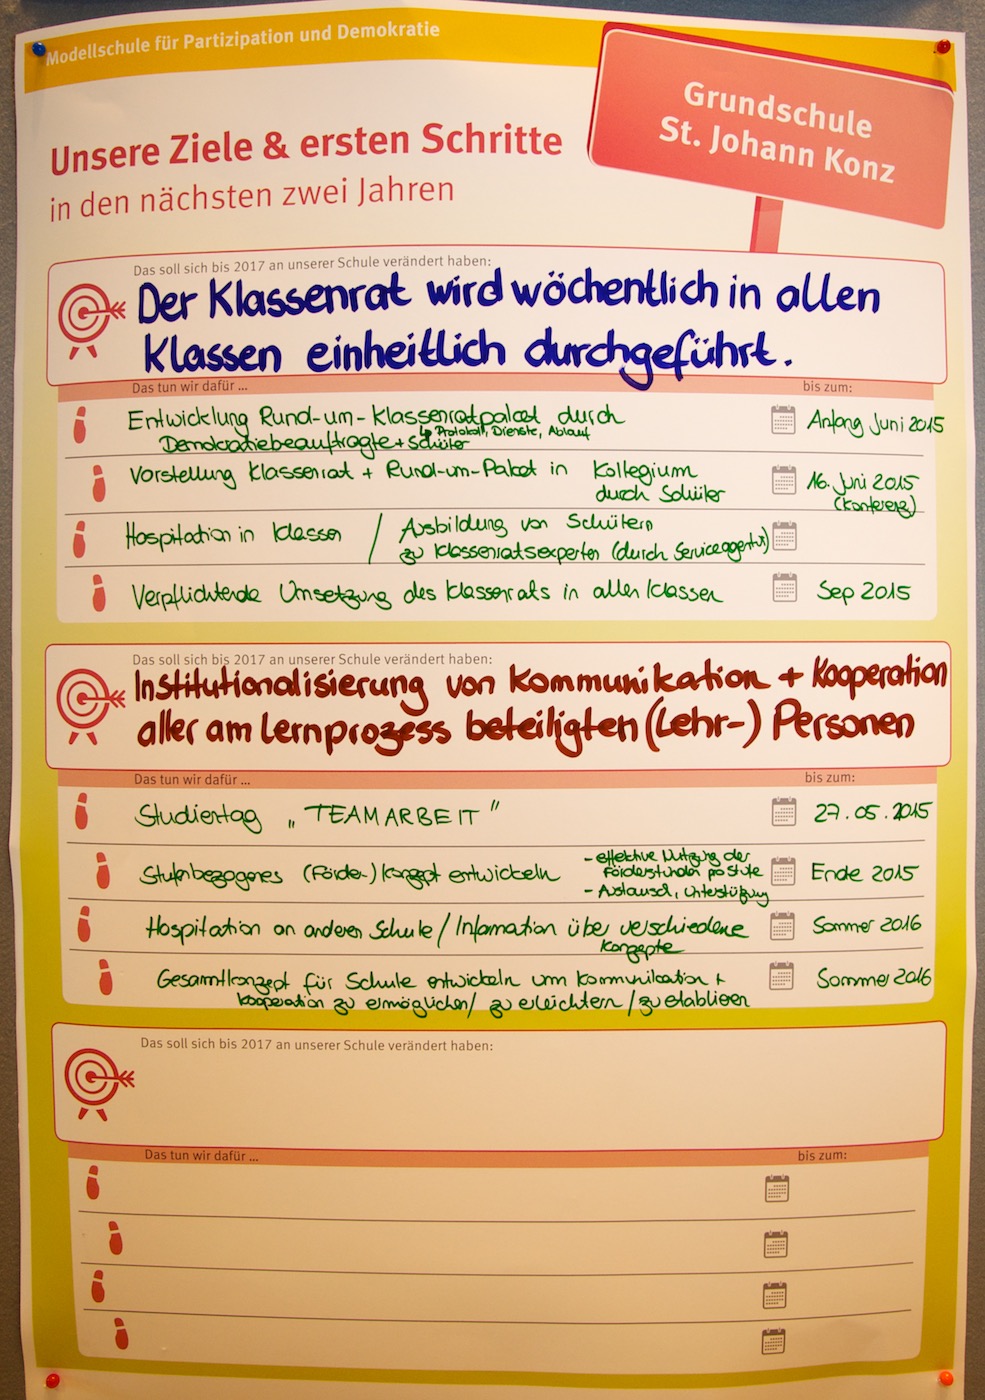 Modellschule für Partizipation und Demokratie
Grundschule
St. Johann Konz
Unsere Ziele & ersten Schritte
in den nächsten zwei Jahren
Das soll sich bis 2017 an unserer Schule verändert haben:
Der Klassenrat wird wöchentlich in allen
Klassen einheitlich durchgeführt.
Das tun wir dafür ... bis zum:
Entwicklung Rund-um-Klassenratpaket durch Anfang Juni 2015
↳ Protokoll, Dienste, Ablauf
Demokratiebeauftragte + Schüler
Vorstellung Klassenrat + Rund-um-Paket in Kollegium 16. Juni 2015
durch Schüler (Konferenz)
Hospitation in Klassen / Ausbildung von Schülern
zu Klassenratsexperten (durch Serviceagentur)
Verpflichtende Umsetzung des Klassenrats in allen Klassen Sep 2015
Das soll sich bis 2017 an unserer Schule verändert haben:
Institutionalisierung von Kommunikation + Kooperation
aller am Lernprozess beteiligten (Lehr-) Personen
Das tun wir dafür ... bis zum:
Studiertag „TEAMARBEIT" 27.05.2015
Stufenbezogenes (Förder-) Konzept entwickeln - effektive Nutzung der Ende 2015
Förderstunden pro Stufe
- Austausch, Unterstützung
Hospitation an anderen Schule / Information über verschiedene Sommer 2016
Konzepte
Gesamtkonzept für Schule entwickeln um Kommunikation + Sommer 2016
Kooperation zu ermöglichen / zu erleichtern / zu etablieren
Das soll sich bis 2017 an unserer Schule verändert haben:
Das tun wir dafür ... bis zum: